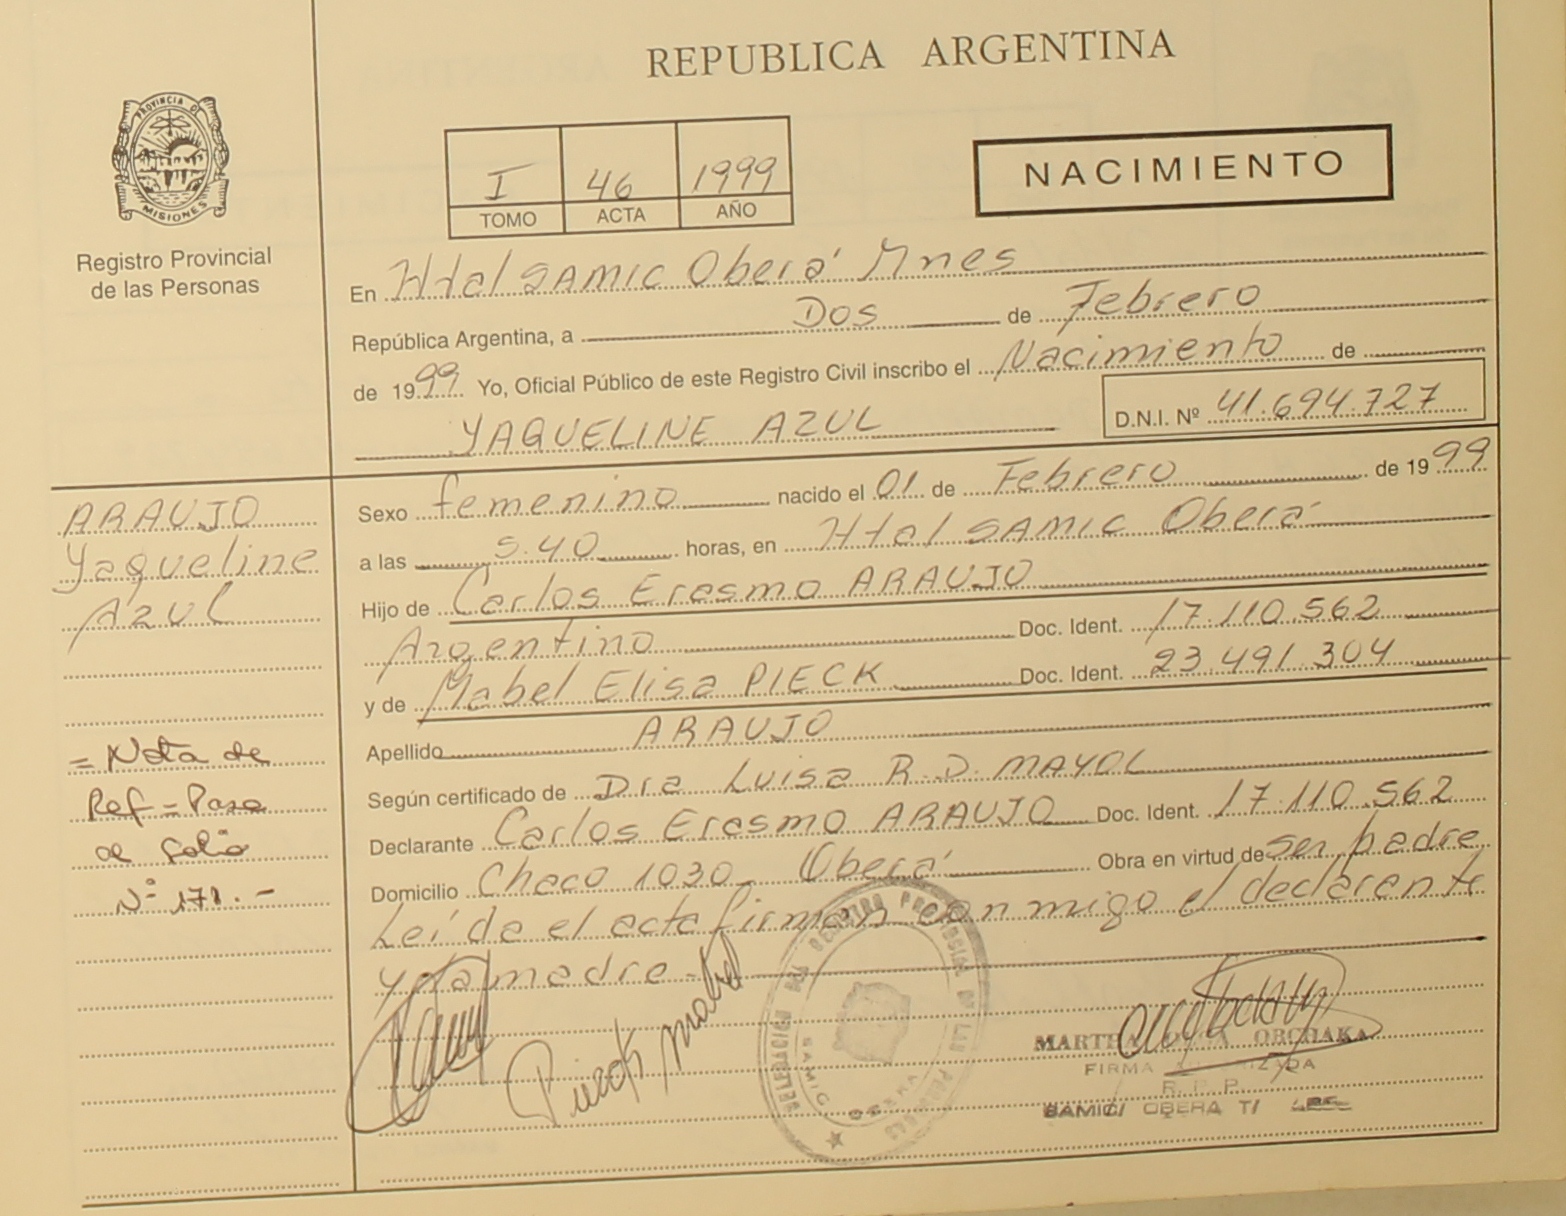 REPUBLICA ARGENTINA
PROVINCIA DE
MISIONES
Registro Provincial
de las Personas
I 46 1999
TOMO ACTA AÑO
NACIMIENTO
En Htal SAMIC Oberá Mnes
República Argentina, a Dos de Febrero
de 1999 Yo, Oficial Público de este Registro Civil inscribo el Nacimiento de
YAQUELINE AZUL D.N.I. Nº 41.694.727
ARAUJO
Yaqueline
Azul
Sexo femenino nacido el 01 de Febrero de 1999
a las 5.40 horas, en Htal SAMIC Oberá
Hijo de Carlos Erasmo ARAUJO
Argentino Doc. Ident. 17.110.562
y de Mabel Elisa PIECK Doc. Ident. 23.491.304
Apellido ARAUJO
Según certificado de Dra Luisa R.D. MAYOL
Declarante Carlos Erasmo ARAUJO Doc. Ident. 17.110.562
Domicilio Chaco 1030 Oberá Obra en virtud de ser padre
Leída el acta firman conmigo el declarante
y la madre -
= Nota de
Ref = Pasa
al folio
Nº 171.-
REGISTRO PROVINCIAL DE LAS PERSONAS
SAMIC OBERA
MARTHA OLGA ORCHAKA
FIRMA AUTORIZADA
R. P. P.
SAMIC/ OBERA T/